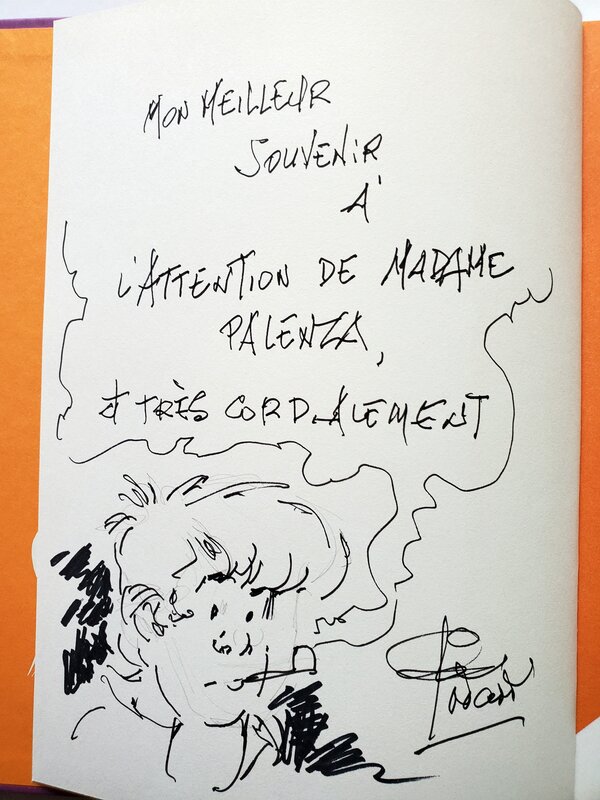 MON MEILLEUR
SOUVENIR
À
L'ATTENTION DE MADAME
PALENZA,
& TRÈS CORDIALEMENT